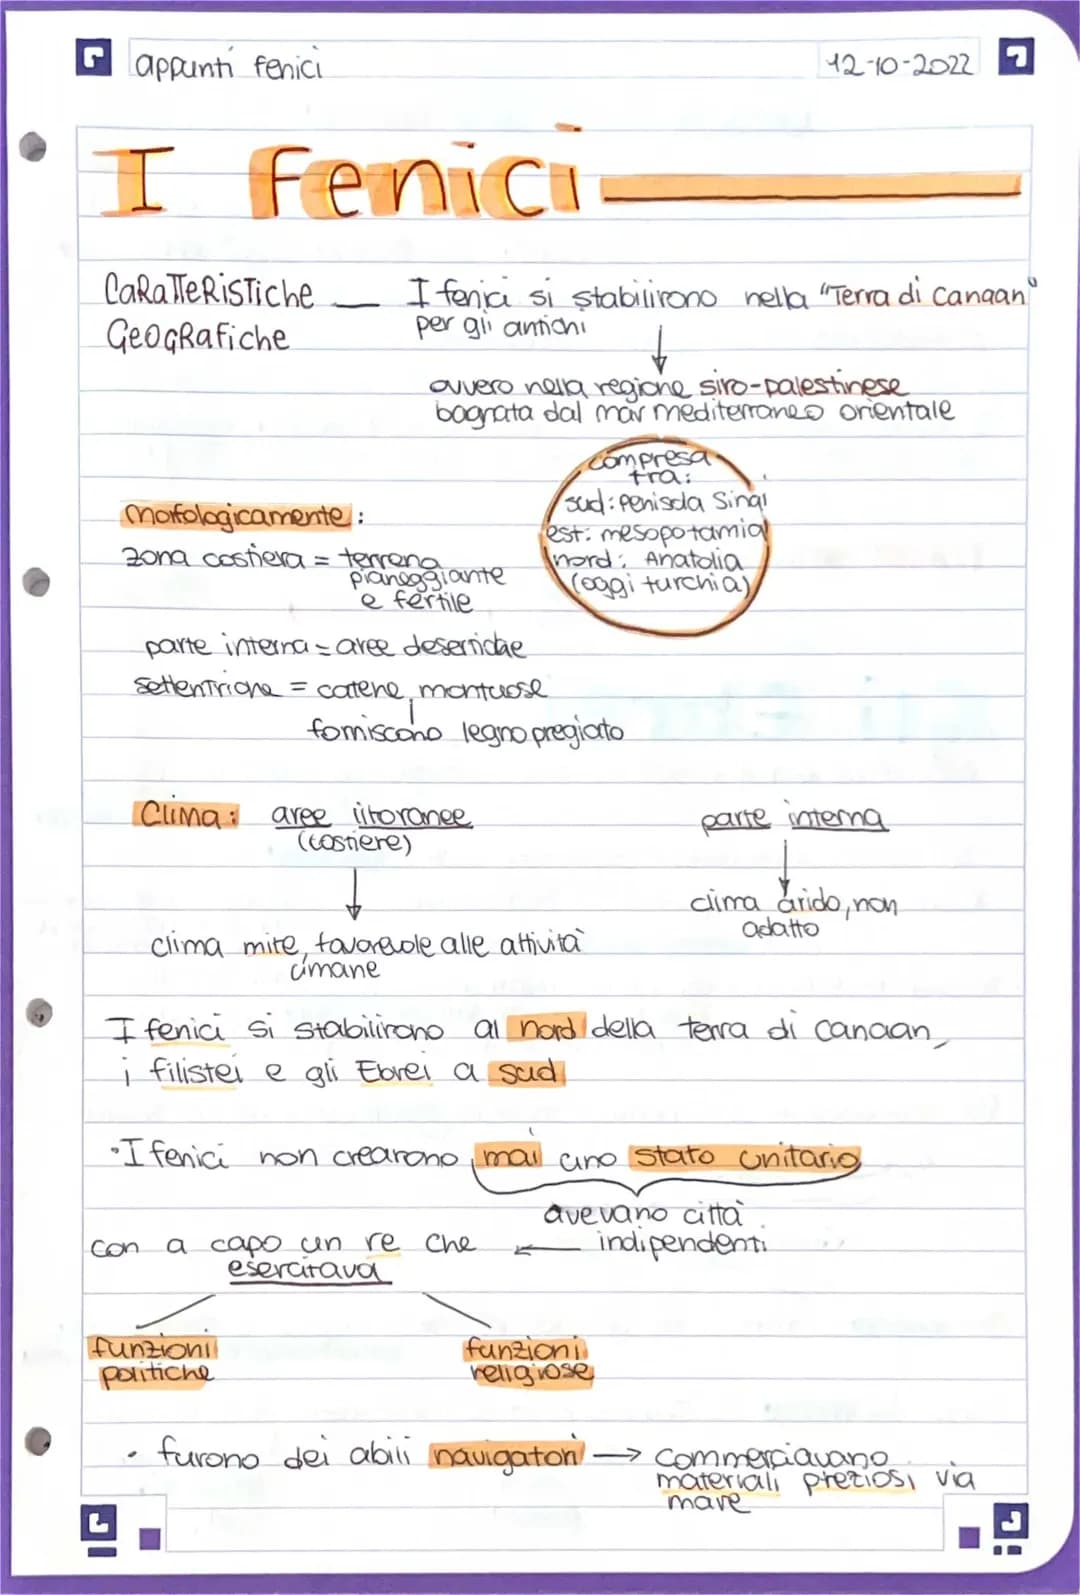 appunti fenici
12-10-2022
I fenici
CaRaTTeRiSTiche
GeOGRafiche
I fenici si stabilirono nella "Terra di Canaan"
per gli antichi
ovvero nella regione siro-palestinese
bagnata dal mar mediterraneo orientale
compresa
tra:
sud: penisola Sinai
est: mesopotamia
nord: Anatolia
(oggi turchia)
morfologicamente:
zona costiera = terreno
pianeggiante
e fertile
parte interna = aree desertiche
settentrione = catene montuose
forniscono legno pregiato
Clima: aree litoranee
(costiere)
parte interna
clima arido, non
adatto
clima mite, favorevole alle attività
umane
I fenici si stabilirono al nord della terra di canaan,
i filistei e gli Ebrei a sud
• I fenici non crearono mai uno stato unitario
avevano città
indipendenti
con a capo un re che
esercitava
funzioni
politiche
funzioni
religiose
• furono dei abili navigatori → commerciavano
materiali preziosi via
mare